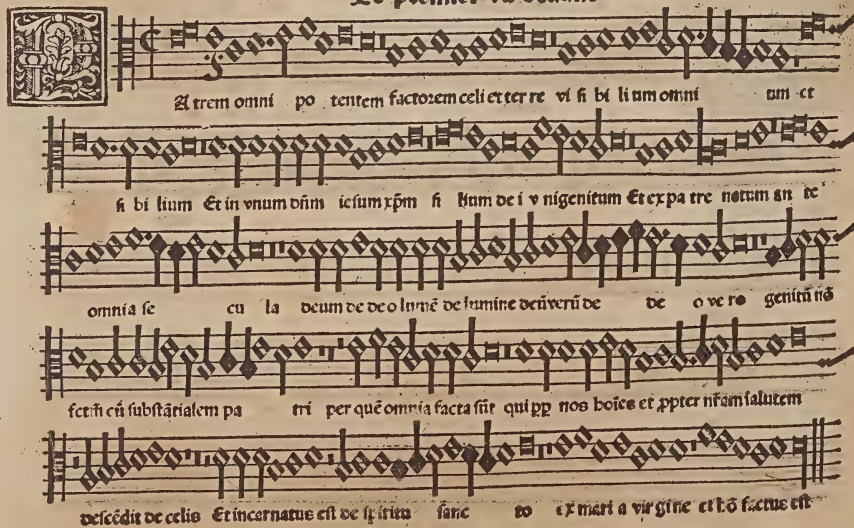 Atrem omni po tentem factorem celi et ter re vi si bi li um omni um et
si bi lium Et in vnum dñm iesum xp̄m fi lium de i v nigenitum Et ex pa tre natum an te
omnia se cu la deum de de o lumē de lumine deū verū de de o ve ro genitū nō
fctm̄ cū substātialem pa tri per quē omnia facta sūt qui pp̄ nos hoīes et ꝓpter nr̄am salutem
descēdit de celis Et incarnatus est de spiritu sanc to ex mari a vir gine et hō factus est